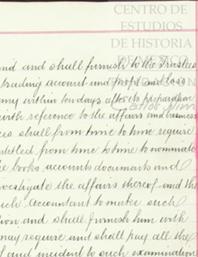 CENTRO DE
ESTUDIOS
DE HISTORIA
and and shall furnish to the Trustees
trading account and profit and loss
any within ten days after its preparation
with reference to the affairs and business
ees shall from time to time require
titled from time to time to nominate
the books accounts documents and
investigate the affairs thereof and the
Accountant to make such
ion and shall furnish him with
may require and shall pay all the
of and incident to such examination